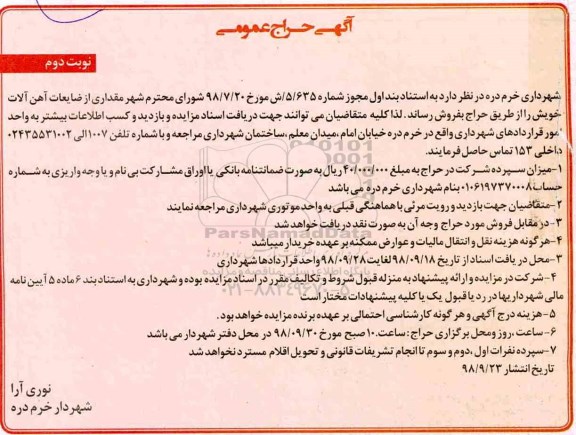 آگهی حراج عمومی
نوبت دوم
شهرداری خرم دره در نظر دارد به استناد بند اول مجوز شماره ۵/۶۳۵/ش مورخ ۹۸/۷/۲۰ شورای محترم شهر مقداری از ضایعات آهن آلات
خویش را از طریق حراج بفروش رساند. لذا کلیه متقاضیان می توانند جهت دریافت اسناد مزایده و بازدید و کسب اطلاعات بیشتر به واحد
امور قراردادهای شهرداری واقع در خرم دره خیابان امام ،میدان معلم ،ساختمان شهرداری مراجعه و با شماره تلفن ۱۰۰۷الی ۰۲۴۳۵۵۳۱۰۰۲
داخلی ۱۵۳ تماس حاصل فرمایند.
۱-میزان سپرده شرکت در حراج به مبلغ ۴۰/۰۰۰/۰۰۰ ریال به صورت ضمانتنامه بانکی یا اوراق مشارکت بی نام و یا وجه واریزی به شماره
حساب ۰۱۰۶۱۹۷۳۷۰۰۰۸ بنام شهرداری خرم دره می باشد
۲-متقاضیان جهت بازدید و رویت مرئی با هماهنگی قبلی به واحد موتوری شهرداری مراجعه نمایند
۳-در مقابل فروش مورد حراج وجه آن به صورت نقد دریافت خواهد شد
۴-هرگونه هزینه نقل و انتقال مالیات و عوارض ممکنه بر عهده خریدار میباشد
۳-محل دریافت اسناد از تاریخ ۹۸/۰۹/۱۸ لغایت ۹۸/۰۹/۲۸ واحد قراردادها شهرداری
۴-شرکت در مزایده و ارائه پیشنهاد به منزله قبول شروط و تکالیف مقرر در اسناد مزایده بوده و شهرداری به استناد بند ۶ ماده ۵ آیین نامه
مالی شهرداریها در رد یا قبول یک یا کلیه پیشنهادات مختار است
۵-هزینه درج آگهی و هر گونه کارشناسی احتمالی بر عهده برنده مزایده خواهد بود.
۶-ساعت ،روز و محل برگزاری حراج: ساعت ۱۰.صبح مورخ ۹۸/۰۹/۳۰ در محل دفتر شهردار می باشد
۷-سپرده نفرات اول ،دوم و سوم تا انجام تشریفات قانونی و تحویل اقلام مسترد نخواهد شد
تاریخ انتشار ۹۸/۹/۲۳
نوری آرا
شهردار خرم دره
ParsNamadData
۰۲۱-۸۸۳۴۹۶۷۰-۵